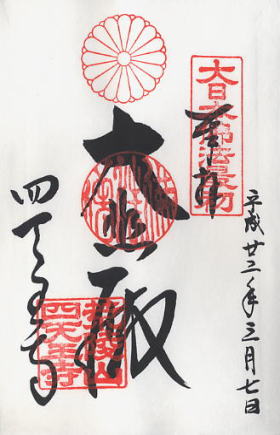 大日本佛法最初
奉拝
平成廿三年三月七日
大悲殿
四天王寺
荒陵山
四天王寺